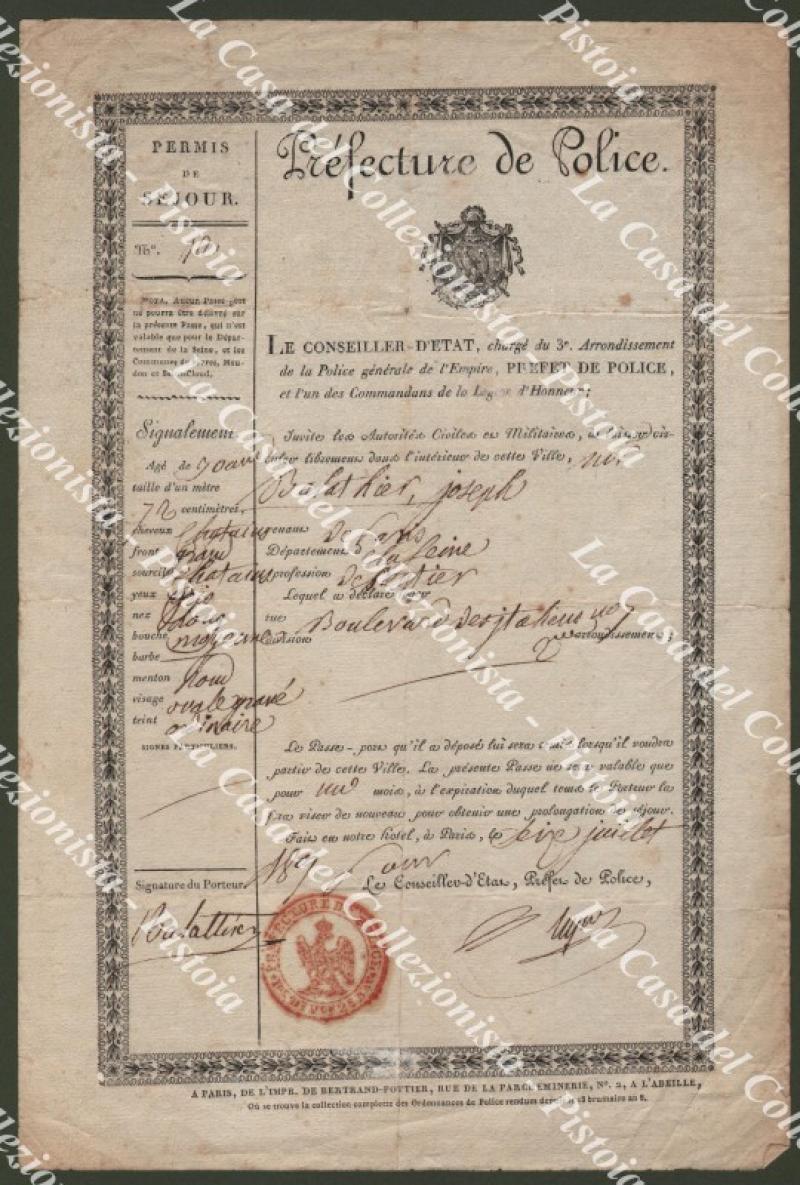 Préfecture de Police.
PERMIS
DE
SÉJOUR.
NOTA. Aucun Passe-port
ne pourra être délivré sur
la présente Passe, qui n'est
valable que pour le Dépar-
tement de la Seine, et les
Communes de Sèvres, Meu-
don et Saint-Cloud.
Signalement
Agé de ans
taille d'un mètre
72 centimètres
cheveux chatains
front
sourcils chatains
yeux
nez
bouche moyenne
barbe
menton rond
visage ovale gravé
teint ordinaire
SIGNES PARTICULIERS.
Signature du Porteur.
Balathier
LE CONSEILLER-D'ETAT, chargé du 3e. Arrondissement
de la Police générale de l'Empire, PREFET DE POLICE,
et l'un des Commandans de la Légion d'Honneur;
Invite les Autorités Civiles et Militaires, à laisser cir-
culer librement dans l'intérieur de cette Ville, mr
Balathier, joseph
venant de Paris
Département de la Seine
profession de
Lequel a déclaré
rue Boulevard des italiens no 7
division 2 arrondissement;
Le Passe-port qu'il a déposé lui sera lorsqu'il voudra
partir de cette Ville. La présente Passe ne sera valable que
pour un mois, à l'expiration duquel tems le Porteur la
fera viser de nouveau pour obtenir une prolongation de séjour.
Fait en notre hôtel, à Paris, le seize juillet
Pour
Le Conseiller-d'Etat, Préfet de Police,
PREFECTURE
A PARIS, DE L'IMPR. DE BERTRAND-POTTIER, RUE DE LA PARCHEMINERIE, No. 2, A L'ABEILLE,
Où se trouve la collection complette des Ordonnances de Police rendues depuis le 18 brumaire an 8.
La Casa del Collezionista - Pistoia